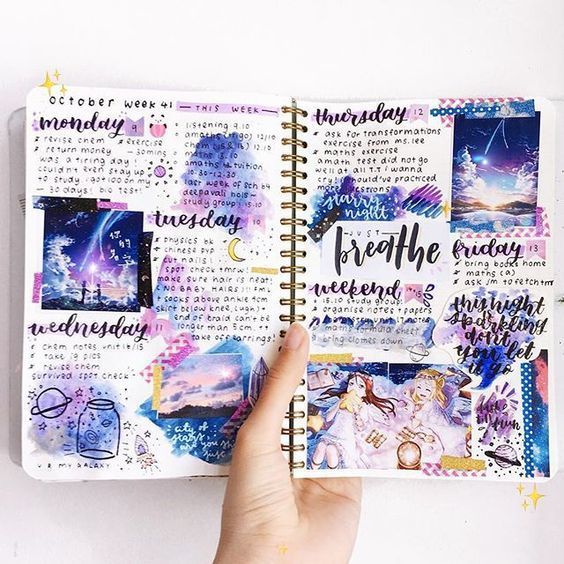 OCTOBER WEEK 41
monday 9
revise chem
exercise
return money
- 30mins
was a tiring day!
couldn't even stay up
to study. got 100.50 my
30 days! bio test!
THIS WEEK
listening 9.10
maths (1190) 12/10
chem (5&18) 12.10
maths 13.10
maths tuition
10.30-12.30
last week of sch
deepavali hols -
study group! 15.10
tuesday 10
physics bk
chinese pyp
cut nails!
spot check tmrw!
make sure hair is neat!
NO BABY HAIRS!!
socks above ankle 4cm
skirt below knee, 4cm
end of braid can't be
longer than 5cm
take off earrings!
wednesday 11
chem notes unit
take ig pics
revise chem
survived spot check
UR MY GALAXY
city of
stars
are you
just
thursday 12
ask for transformations
exercise from ms. lee
maths exercise
math test did not go
well at all T.T i wanna
cry should've practiced
more questions
starry
night
JUST
breathe
weekend
15.10 study group!
organise notes + papers
maths formula sheet
bring clomes down
friday 13
bring books home
maths (a)
ask jm to fetch tmr
this night
is
sparkling
don't
you let
it go
你的名字